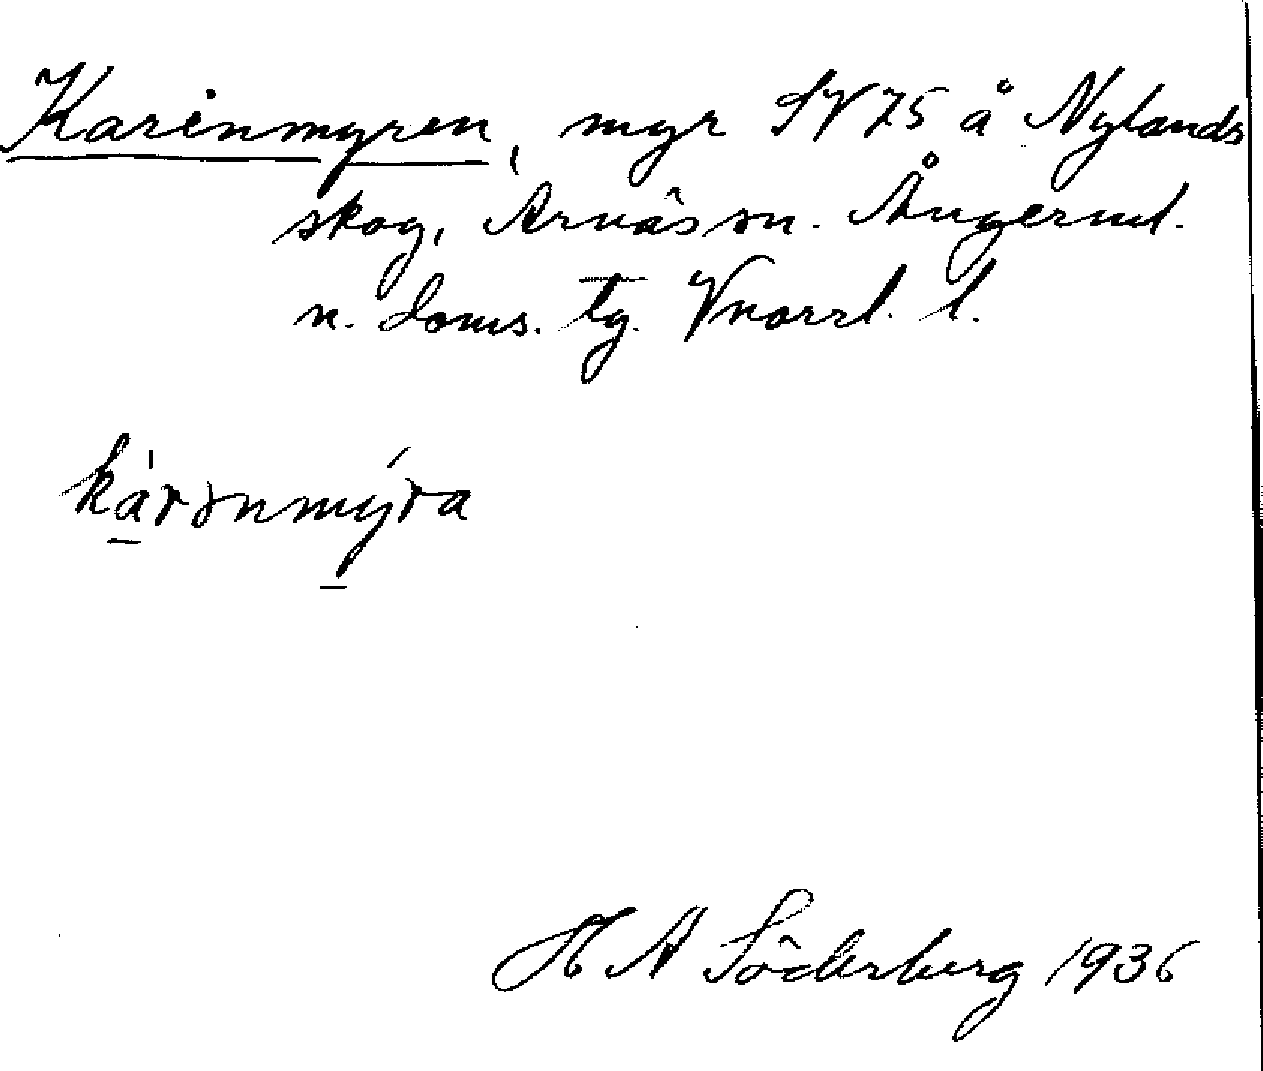 Karinmyren, myr SV 75 å Nylands
skog, Arnäs sn. Ångerml.
n. doms. tg. Vnorrl. l.
kárənmýra
H A Söderberg 1936